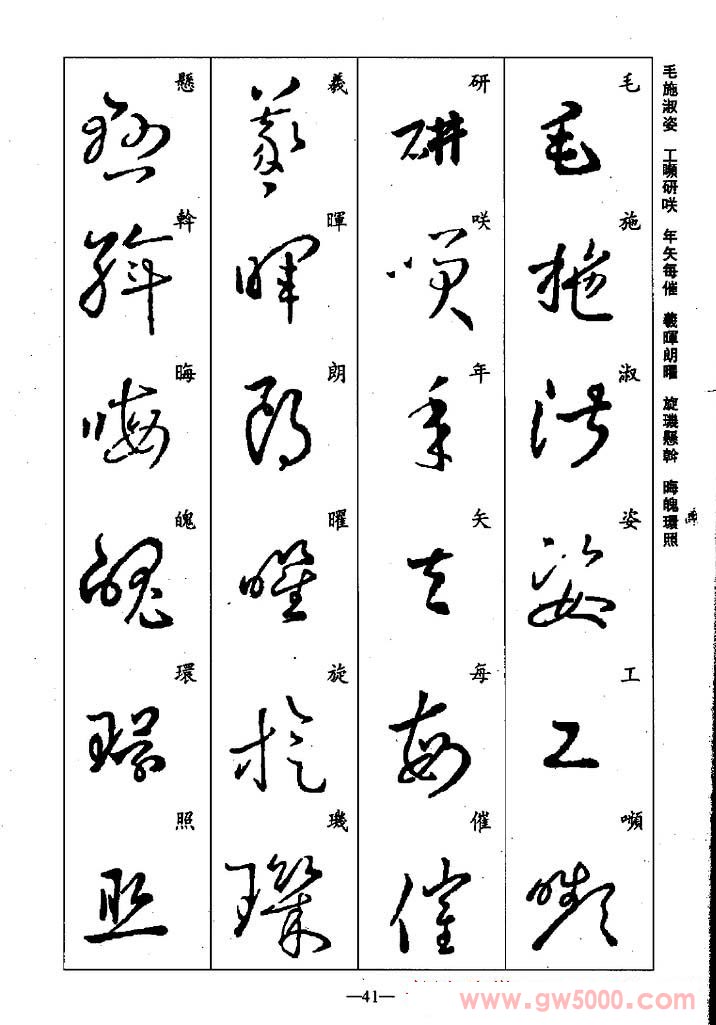 毛施淑姿 工嚬研咲 年矢每催 羲暉朗曜 旋璣懸斡 晦魄環照
毛施淑姿工嚬
研咲年矢每催
義暉朗曜旋璣
懸斡晦魄環照
—41—
www.gw5000.com